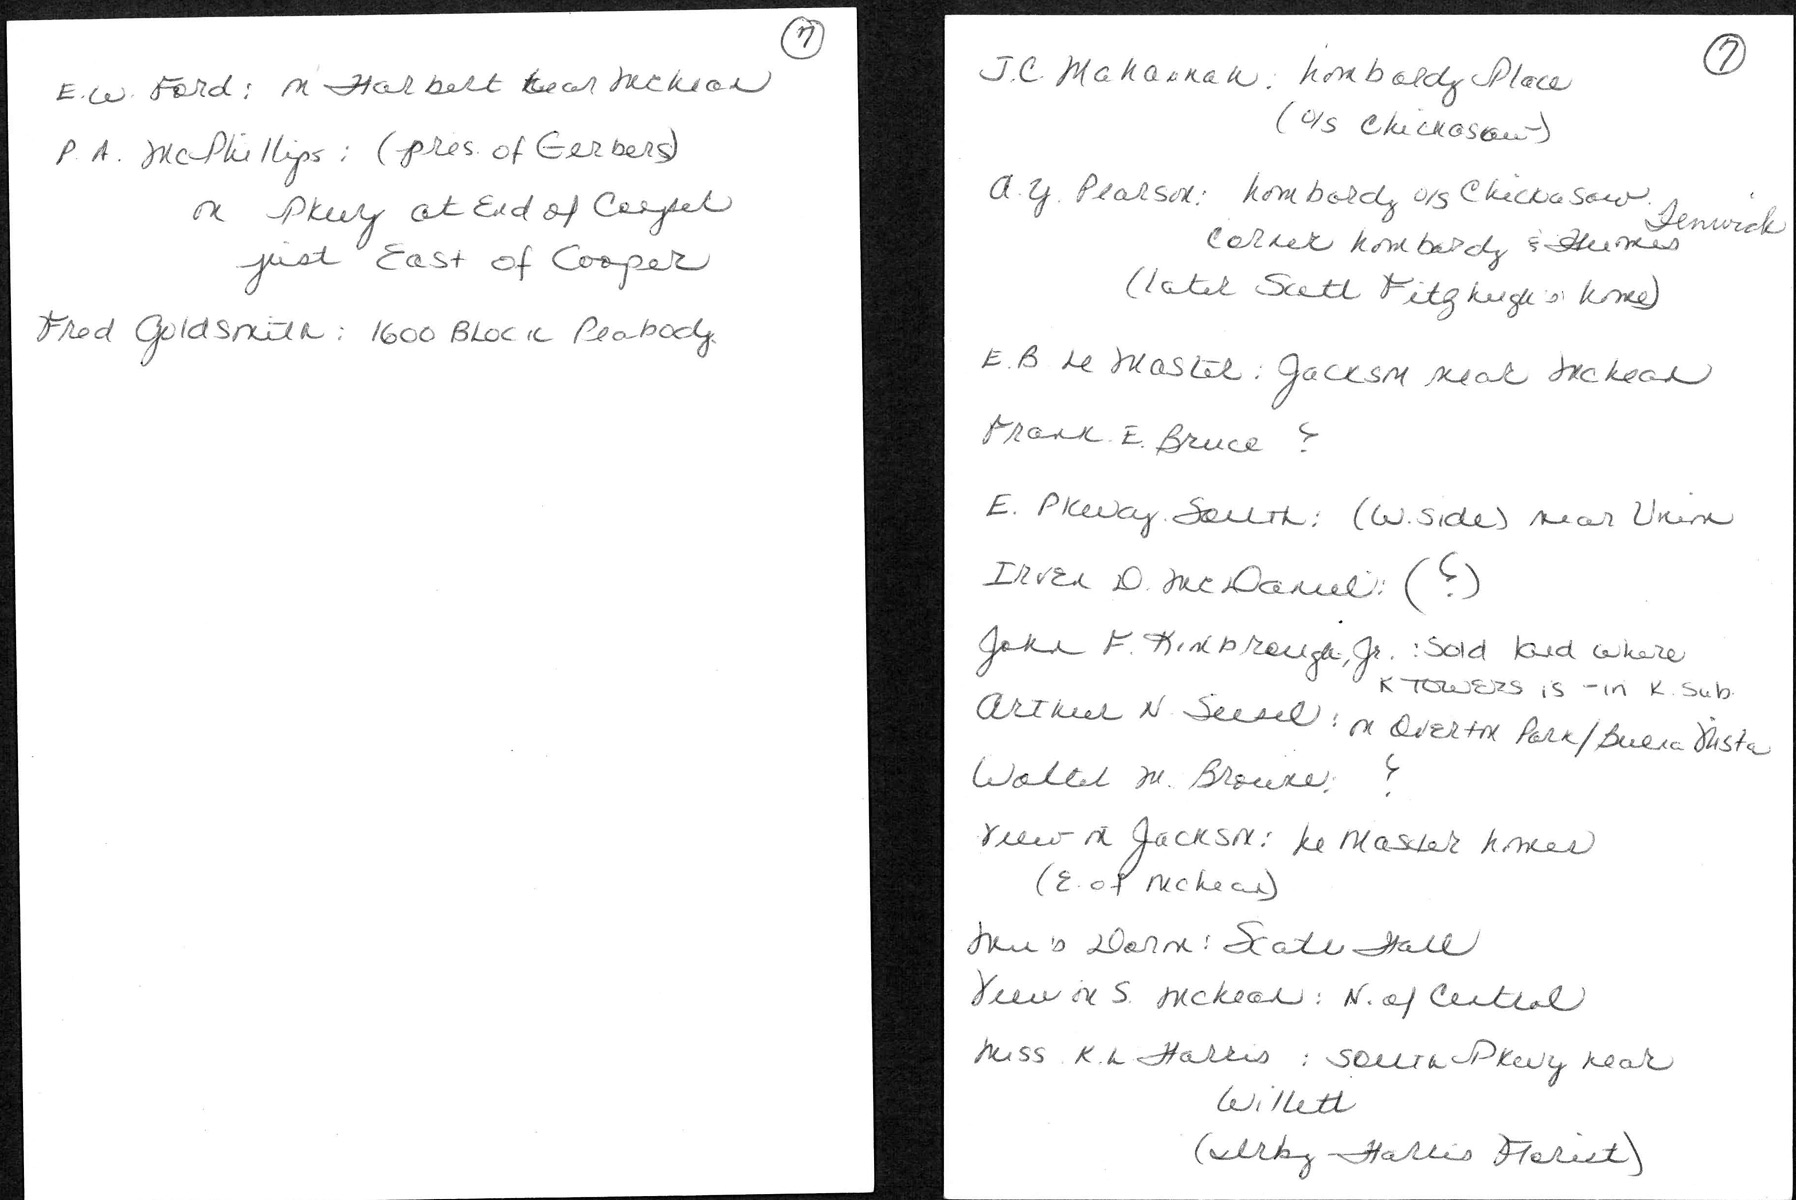 7
E.W. Ford: on Harbert near McLean
P.A. McPhillips: (pres. of Gerbers)
on Pkwy at End of Cooper
just East of Cooper
Fred Goldsmith: 1600 Block Peabody
7
J.C. Mahannah: Lombardy Place
(o/s Chickasaw)
A.Y. Pearson: Lombardy o/s Chickasaw.
Fenwick
Corner Lombardy & Humes
(later Scott Fitzhugh's home)
E.B Le Master: Jackson near McLean
Frank E. Bruce ?
E. Pkway. South: (W. side) near Union
Irven D. McDaniel: (?)
John F. Kimbrough, Jr. : sold land where
K TOWERS is - in K. Sub.
Arthur N. Seessel: on Overton Park/Buena Vista
Walter M. Browne: ?
View on Jackson: Le Master homes
(E. of McLean)
Men's Dorm: Scates Hall
View on S. McLean: N. of Central
Miss K.L Harris : South Pkwy near
Willett
(Irby-Harris Florist)